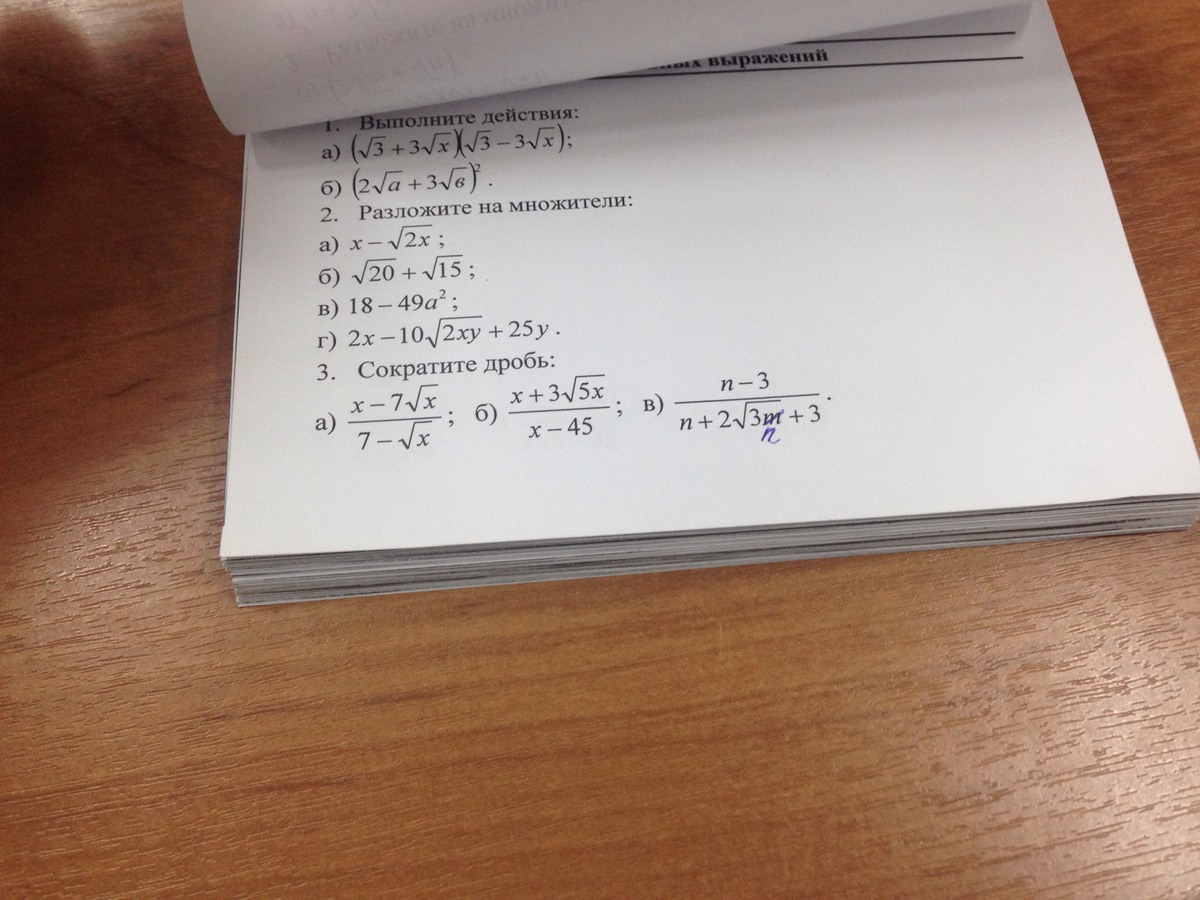 выражений
1. Выполните действия:
а) (√3 + 3√x)(√3 − 3√x);
б) (2√а + 3√в)² .
2. Разложите на множители:
а) x − √2x ;
б) √20 + √15 ;
в) 18 − 49a² ;
г) 2x − 10√2xy + 25y .
3. Сократите дробь:
а) (x − 7√x)/(7 − √x) ; б) (x + 3√5x)/(x − 45) ; в) (n − 3)/(n + 2√3m + 3) .
n